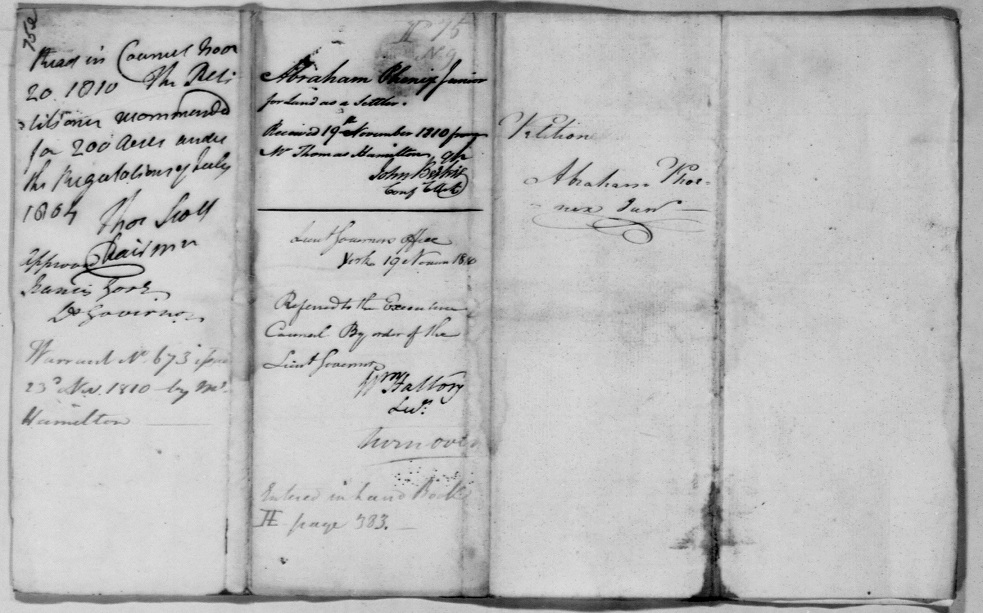 75a
Read in Council Novr
20. 1810 The Peti
tioner recommended
for 200 acres under
the Regulations of July
1804
Thos Scott
Chairman
Approved
Francis Gore
Lt Governor
Warrant No 673 issd
23d Nov. 1810 by Mr
Hamilton
75
No 9
Abraham Phenix Junior
for Land as a Settler.
Received 19th November 1810 from
Mr Thomas Hamilton
John Beikie
Conf Clk
Lieut Governors Office
York 19 Novem 1810
Referred to the Executive
Council By order of the
Lieut Governor
Wm Halton
Secy
turn over
Entered in Land Book
page 383.
Petition
Abraham Phoe-
nex Junr